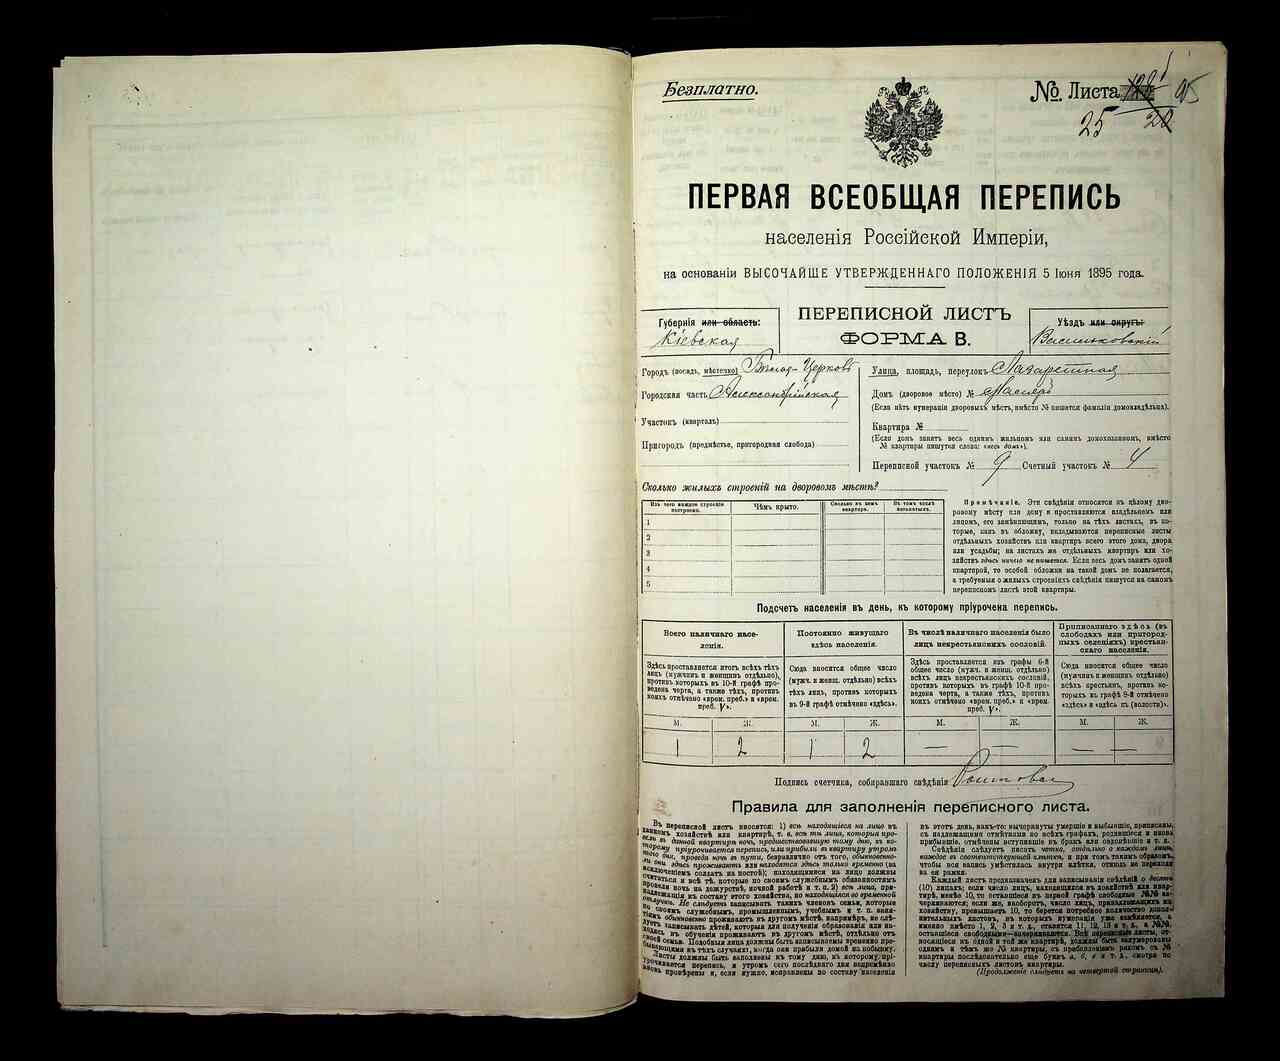 Безплатно.
№. Листа
25 20
ПЕРВАЯ ВСЕОБЩАЯ ПЕРЕПИСЬ
населенія Россійской Имперіи,
на основаніи ВЫСОЧАЙШЕ УТВЕРЖДЕННАГО ПОЛОЖЕНІЯ 5 Іюня 1895 года.
ПЕРЕПИСНОЙ ЛИСТЪ
ФОРМА В.
Губернія или область:
Кіевская
Уѣздъ или округъ:
Васильковскій
Городъ (посадъ, мѣстечко) Бѣлая-Церковь
Городская часть Александрійская
Участокъ (кварталъ)
Пригородъ (предмѣстье, пригородная слобода)
Улица, площадь, переулокъ Лазаретная
Домъ (дворовое мѣсто) №
(Если нѣтъ нумераціи дворовыхъ мѣстъ, вмѣсто № пишется фамилія домовладѣльца).
Квартира №
(Если домъ занятъ весь однимъ жильцомъ или самимъ домохозяиномъ, вмѣсто
№ квартиры пишутся слова: «весь домъ»).
Переписной участокъ № 9 Счетный участокъ № 4
Сколько жилыхъ строеній на дворовомъ мѣстѣ?
Изъ чего каждое строеніе построено.
Чѣмъ крыто.
Сколько въ немъ квартиръ.
Въ томъ числѣ незанятыхъ.
1
2
3
4
5
Примѣчаніе. Эти свѣдѣнія относятся къ цѣлому дво-
ровому мѣсту или дому и проставляются владѣльцемъ или
лицомъ, его замѣняющимъ, только на тѣхъ листахъ, въ ко-
торые, какъ въ обложку, вкладываются переписные листы
отдѣльныхъ хозяйствъ или квартиръ всего этого дома, двора
или усадьбы; на листахъ же отдѣльныхъ квартиръ или хо-
зяйствъ здѣсь ничего не пишется. Если весь домъ занятъ одной
квартирой, то особой обложки на такой домъ не полагается,
а требуемыя о жилыхъ строеніяхъ свѣдѣнія пишутся на самомъ
переписномъ листѣ этой квартиры.
Подсчетъ населенія въ день, къ которому пріурочена перепись.
Всего наличнаго насе-
ленія.
Постоянно живущаго
здѣсь населенія.
Въ числѣ наличнаго населенія было
лицъ некрестьянскихъ сословій.
Приписаннаго здѣсь (въ
слободахъ или пригород-
ныхъ селеніяхъ) крестьян-
скаго населенія.
Здѣсь проставляется итогъ всѣхъ тѣхъ
лицъ (мужчинъ и женщинъ отдѣльно),
противъ которыхъ въ 10-й графѣ про-
ведена черта, а также тѣхъ, противъ
коихъ отмѣчено «врем. преб.» и «врем.
преб. V».
Сюда вносится общее число
(мужч. и женщ. отдѣльно) всѣхъ
тѣхъ лицъ, противъ которыхъ
въ 9-й графѣ отмѣчено «здѣсь».
Здѣсь проставляется изъ графы 6-й
общее число (мужч. и женщ. отдѣльно)
всѣхъ лицъ некрестьянскихъ сословій,
противъ которыхъ въ графѣ 10-й про-
ведена черта, а также тѣхъ, противъ
коихъ отмѣчено «врем. преб.» и «врем.
преб. V».
Сюда вносится общее число
(мужчинъ и женщинъ отдѣльно)
всѣхъ крестьянъ, противъ ко-
торыхъ въ графѣ 8-й отмѣчено
«здѣсь» и «здѣсь къ (волости)».
М. Ж. М. Ж. М. Ж. М. Ж.
1 2 1 2 — — — —
Подпись счетчика, собиравшаго свѣдѣнія
Правила для заполненія переписного листа.
Въ переписной листъ вносятся: 1) всѣ находящіеся на лицо въ
данномъ хозяйствѣ или квартирѣ, т. е. всѣ тѣ лица, которыя про-
вели въ данной квартирѣ ночь, предшествовавшую тому дню, къ ко-
торому пріурочивается перепись, или прибыли въ квартиру утромъ
того дня, проведя ночь въ пути, безразлично отъ того, обыкновенно-
ли они здѣсь проживаютъ или находятся здѣсь только временно (за
исключеніемъ солдатъ на постоѣ); находящимися на лицо должны
считаться и всѣ тѣ, которые по своимъ служебнымъ обязанностямъ
провели ночь на дежурствѣ, ночной работѣ и т. п. 2) всѣ лица, при-
надлежащія къ составу этого хозяйства, но находящіяся во временной
отлучкѣ. Не слѣдуетъ записывать такихъ членовъ семьи, которые
по своимъ служебнымъ, промышленнымъ, учебнымъ и т. п. заня-
тіямъ обыкновенно проживаютъ въ другомъ мѣстѣ, напримѣръ, не слѣ-
дуетъ записывать дѣтей, которыя для полученія образованія или на-
ходясь въ обученіи проживаютъ въ другомъ мѣстѣ, отдѣльно отъ
своей семьи. Подобныя лица должны быть записываемы временно пре-
бывающими въ тѣхъ случаяхъ, когда они прибыли домой на побывку.
Листы должны быть заполнены къ тому дню, къ которому прі-
урочивается перепись, и утромъ сего послѣдняго дня непремѣнно
вновь провѣрены и, если нужно, исправлены по составу населенія
въ этотъ день, какъ-то: вычеркнуты умершіе и выбывшіе, приписаны,
съ надлежащими отмѣтками по всѣхъ графахъ, родившіеся и вновь
прибывшіе, отмѣчены вступившіе въ бракъ или овдовѣвшіе и т. д.
Свѣдѣнія слѣдуетъ писать четко, отдѣльно о каждомъ лицѣ,
каждое въ соотвѣтствующей клѣткѣ, и при томъ такимъ образомъ,
чтобы вся запись умѣсталась внутри клѣтки, отнюдь не переходя
за ея рамки.
Каждый листъ предназначенъ для записыванія свѣдѣній о десяти
(10) лицахъ; если число лицъ, находящихся въ хозяйствѣ или квар-
тирѣ, менѣе 10, то оставшіеся въ первой графѣ свободные №№ за-
черкиваются; если же, наоборотъ, число лицъ, принадлежащихъ къ
хозяйству, превышаетъ 10, то берется потребное количество допол-
нительныхъ листовъ, въ которыхъ нумерація уже измѣняется, а
именно вмѣсто 1, 2, 3 и т. д., ставятся 11, 12, 13 и т. д., а №№,
оставшіеся свободными—зачеркиваются. Всѣ переписные листы, от-
носящіеся къ одной и той же квартирѣ, должны быть занумерованы
однимъ и тѣмъ же № квартиры, съ прибавленіемъ рядомъ съ №
квартиры послѣдовательно еще буквъ а, б, в и т. д., смотря по
числу переписныхъ листовъ квартиры.
(Продолженіе слѣдуетъ на четвертой страницѣ).